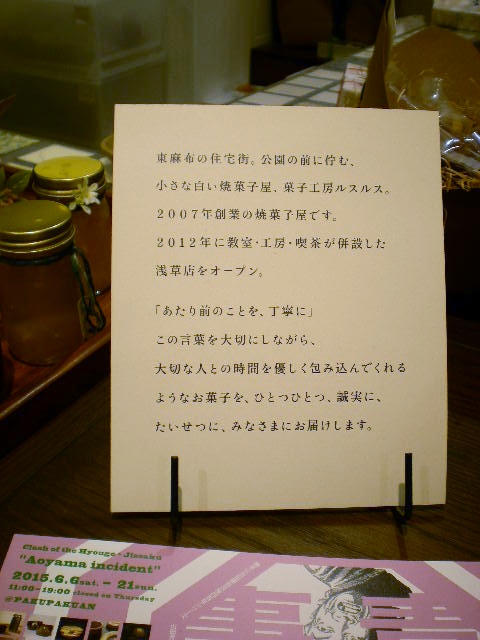 東麻布の住宅街。公園の前に佇む、
小さな白い焼菓子屋、菓子工房ルスルス。
２００７年創業の焼菓子屋です。
２０１２年に教室・工房・喫茶が併設した
浅草店をオープン。
「あたり前のことを、丁寧に」
この言葉を大切にしながら、
大切な人との時間を優しく包み込んでくれる
ようなお菓子を、ひとつひとつ、誠実に、
たいせつに、みなさまにお届けします。
Clash of the Hyouge・Jissaku
"Aoyama incident"
2015.6.6sat. - 21sun.
11:00-19:00 closed on Thursday
@PAKUPAKUAN